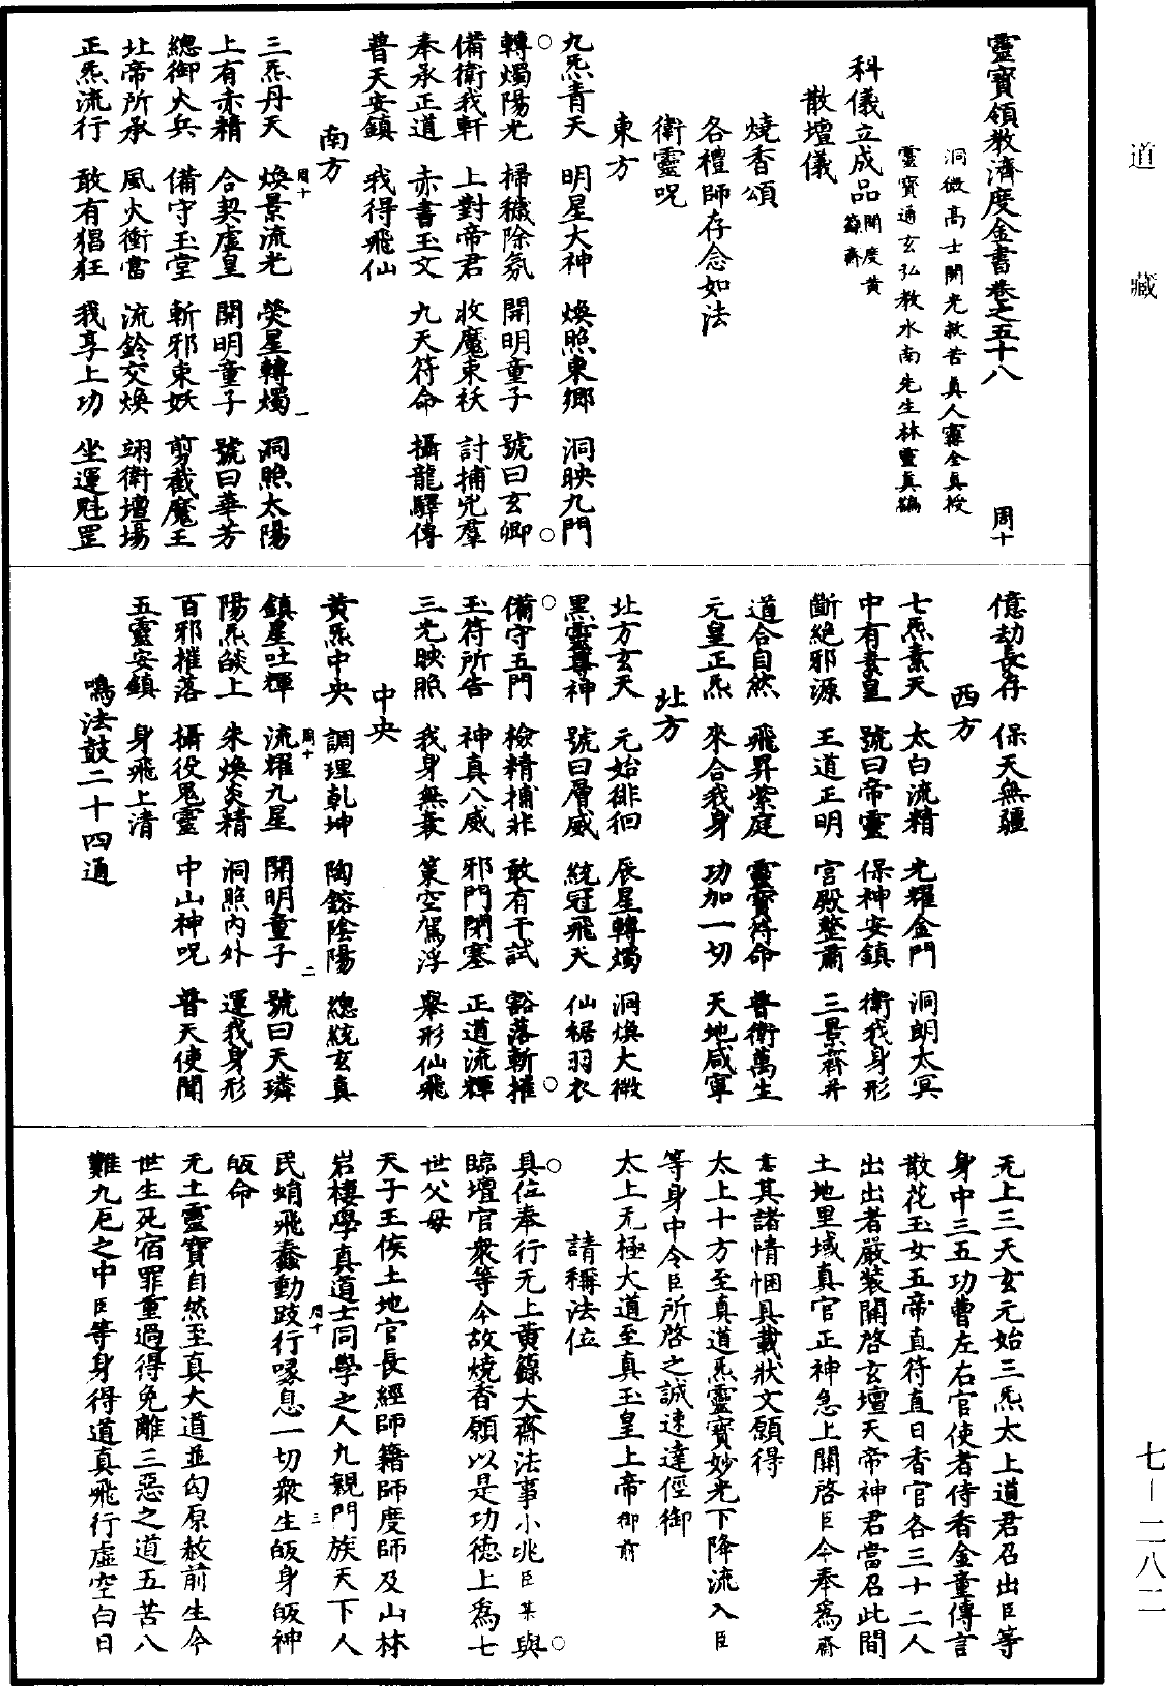 道藏
靈寶領教濟度金書卷之五十八 周十
洞微高士開光救苦真人寗全真授
靈寶通玄弘教水南先生林靈真編
科儀立成品 開度黃籙齋
散壇儀
燒香頌
各禮師存念如法
衛靈呪
東方
九炁青天 明星大神 煥照東鄉 洞映九門
轉燭陽光 掃穢除氛 開明童子 號曰玄卿
備衛我軒 上對帝君 收魔束祅 討捕兇羣
奉承正道 赤書玉文 九天符命 攝龍驛傳
普天安鎮 我得飛仙
南方
周十 一
三炁丹天 煥景流光 熒星轉燭 洞照太陽
上有赤精 合契虛皇 開明童子 號曰華芳
總御火兵 備守玉堂 斬邪束妖 剪截魔王
北帝所承 風火衝當 流鈴交煥 翊衛壇場
正炁流行 敢有猖狂 我享上功 坐運魁罡
億劫長存 保天無疆
西方
七炁素天 太白流精 光耀金門 洞朗太冥
中有素皇 號曰帝靈 保神安鎮 衛我身形
斷絕邪源 王道正明 宮殿整肅 三景齊并
道合自然 飛昇紫庭 靈寶符命 普衛萬生
元皇正炁 來合我身 功加一切 天地咸寧
北方
北方玄天 元始徘徊 辰星轉燭 洞煥太微
黑靈尊神 號曰層威 統冠飛天 仙裾羽衣
備守五門 檢精捕非 敢有干試 豁落斬摧
玉符所告 神真八威 邪門閉塞 正道流輝
三光映照 我身無衰 策空駕浮 舉形仙飛
中央
黃炁中央 調理乹坤 陶鎔陰陽 總統玄真
周十 二
鎮星吐輝 流耀九星 開明童子 號曰天璘
陽炁燄上 朱煥炎精 洞照內外 運我身形
百邪摧落 攝役鬼靈 中山神呪 普天使聞
五靈安鎮 身飛上清
鳴法鼓二十四通
无上三天玄元始三炁太上道君召出臣等
身中三五功曹左右官使者侍香金童傳言
散花玉女五帝直符直日香官各三十二人
出出者嚴裝關啓玄壇天帝神君當召此間
土地里域真官正神急上關啓臣今奉為齋
意其諸情悃具載狀文願得
太上十方至真道炁靈寶妙光下降流入臣
等身中令臣所啓之誠速達徑御
太上无極大道至真玉皇上帝御前
請稱法位
具位奉行无上黃籙大齋法事小兆臣某與
臨壇官衆等今故燒香願以是功德上為七
世父母
天子王侯土地官長經師籍師度師及山林
岩棲學真道士同學之人九親門族天下人
周十 三
民蛸飛蠢動跂行喙息一切衆生皈身皈神
皈命
无上靈寶自然至真大道並匃原赦前生今
世生死宿罪重過得免離三惡之道五苦八
難九厄之中臣等身得道真飛行虛空白日
七－二八二